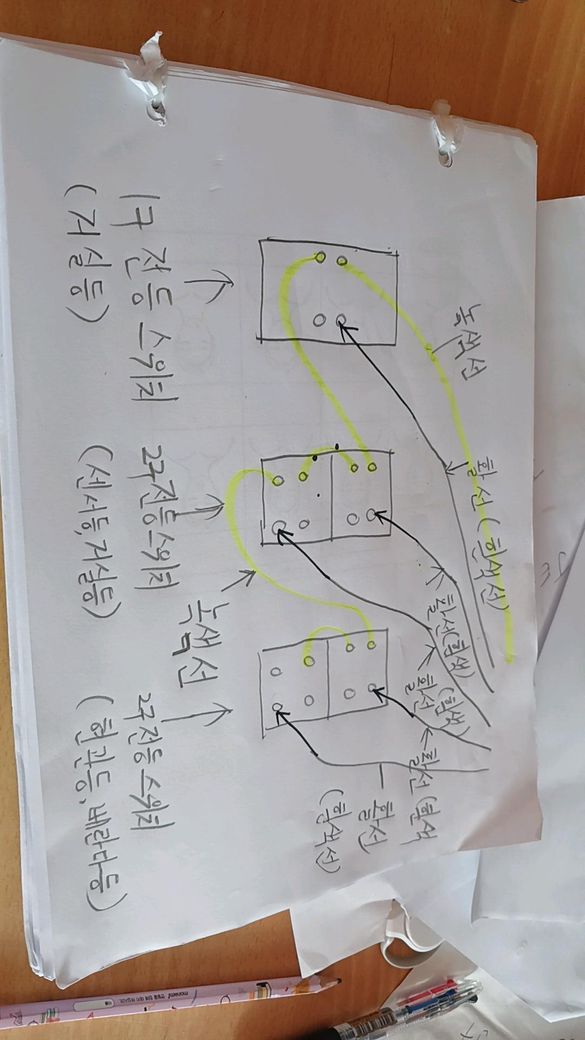 녹색선
활선 (흰색선)
활선(흰색)
활선 (흰색)
활선 (흰색
활선
(흰색선)
녹색선
1구 전등 스위치
(거실등)
2구전등스위치
(센서등,거실등)
2구전등스위치
(현관등, 베란다등)